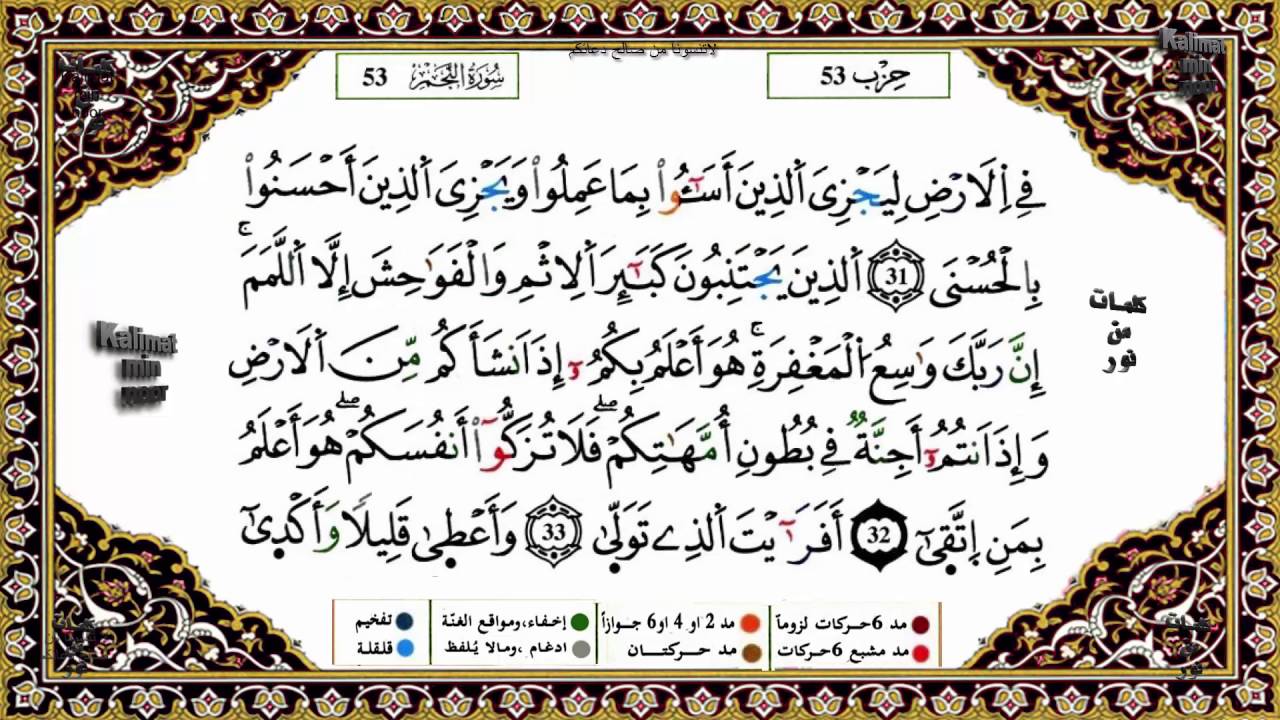 لاتنسونا من صالح دعائكم
حِزْب 53
سُورَةُ النَّجْمِ 53
فِے اِ۬لَارْضِ لِيَجْزِىَ اَ۬لذِينَ أَسَٰٓـُٔواْ بِمَا عَمِلُواْ وَيَجْزِىَ اَ۬لذِينَ أَحْسَنُواْ
بِالْحُسْنَى 31 اَ۬لذِينَ يَجْتَنِبُونَ كَبَٰٓئِرَ اَ۬لِاثْمِ وَالْفَوَٰحِشَ إِلَّا اَ۬للَّمَمَۚ
إِنَّ رَبَّكَ وَٰسِعُ اُ۬لْمَغْفِرَةِۚ هُوَ أَعْلَمُ بِكُمُۥٓ إِذَ اَنشَأَكُم مِّنَ اَ۬لَارْضِ
وَإِذَ اَنتُمُۥٓ أَجِنَّةٌ فِے بُطُونِ أُمَّهَٰتِكُمْۖ فَلَا تُزَكُّوٓاْ أَنفُسَكُمْۖ هُوَ أَعْلَمُ
بِمَنِ اِ۪تَّق۪ىٰٓ 32 أَفَرَٰٓيْتَ اَ۬لذِے تَوَلّ۪ىٰ 33 وَأَعْط۪ىٰ قَلِيلاً وَأَكْد۪ىٰٓ
Kalimat
min
noor
كلمات
من
نور
Kalimat
min
noor
مد 6 حركات لزوماً
مد 2 او 4 او 6 جوازاً
إخفاء، ومواقع الغنّة
تفخيم
مد مشبع 6 حركات
مد حركتان
ادغام، ومالا يُلفظ
قلقلة